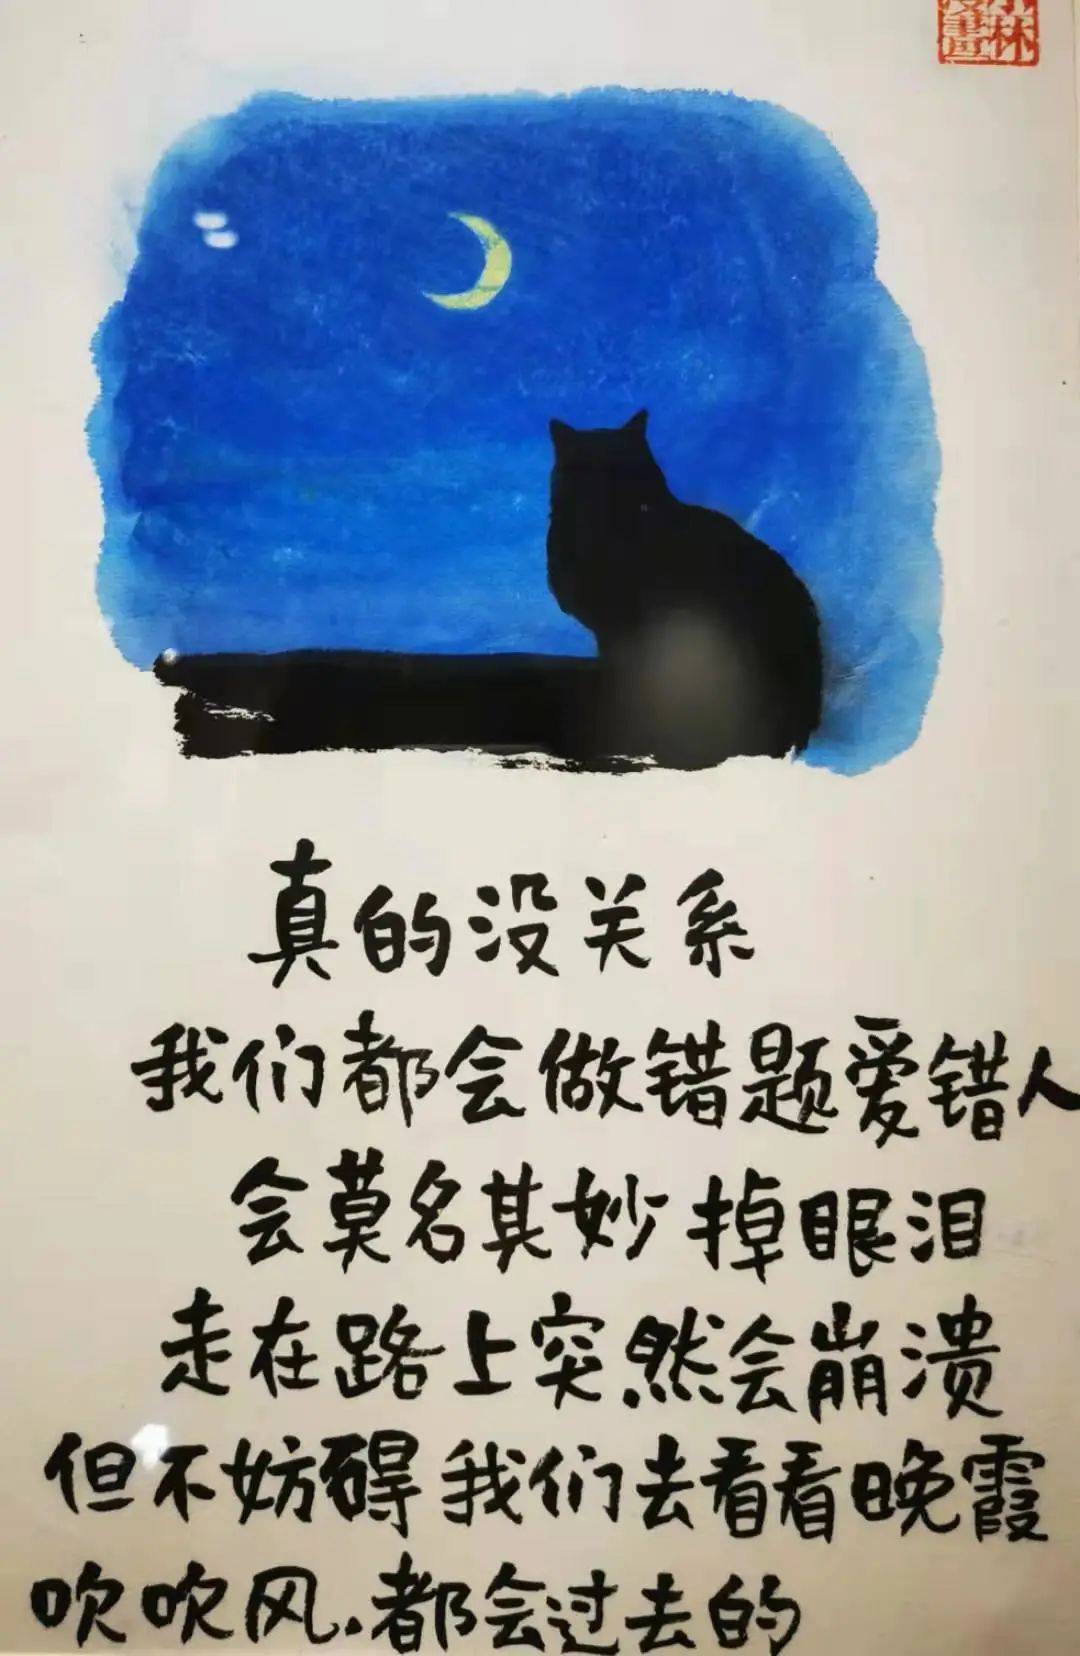 真的没关系
我们都会做错题爱错人
会莫名其妙掉眼泪
走在路上突然会崩溃
但不妨碍我们去看看晚霞
吹吹风.都会过去的